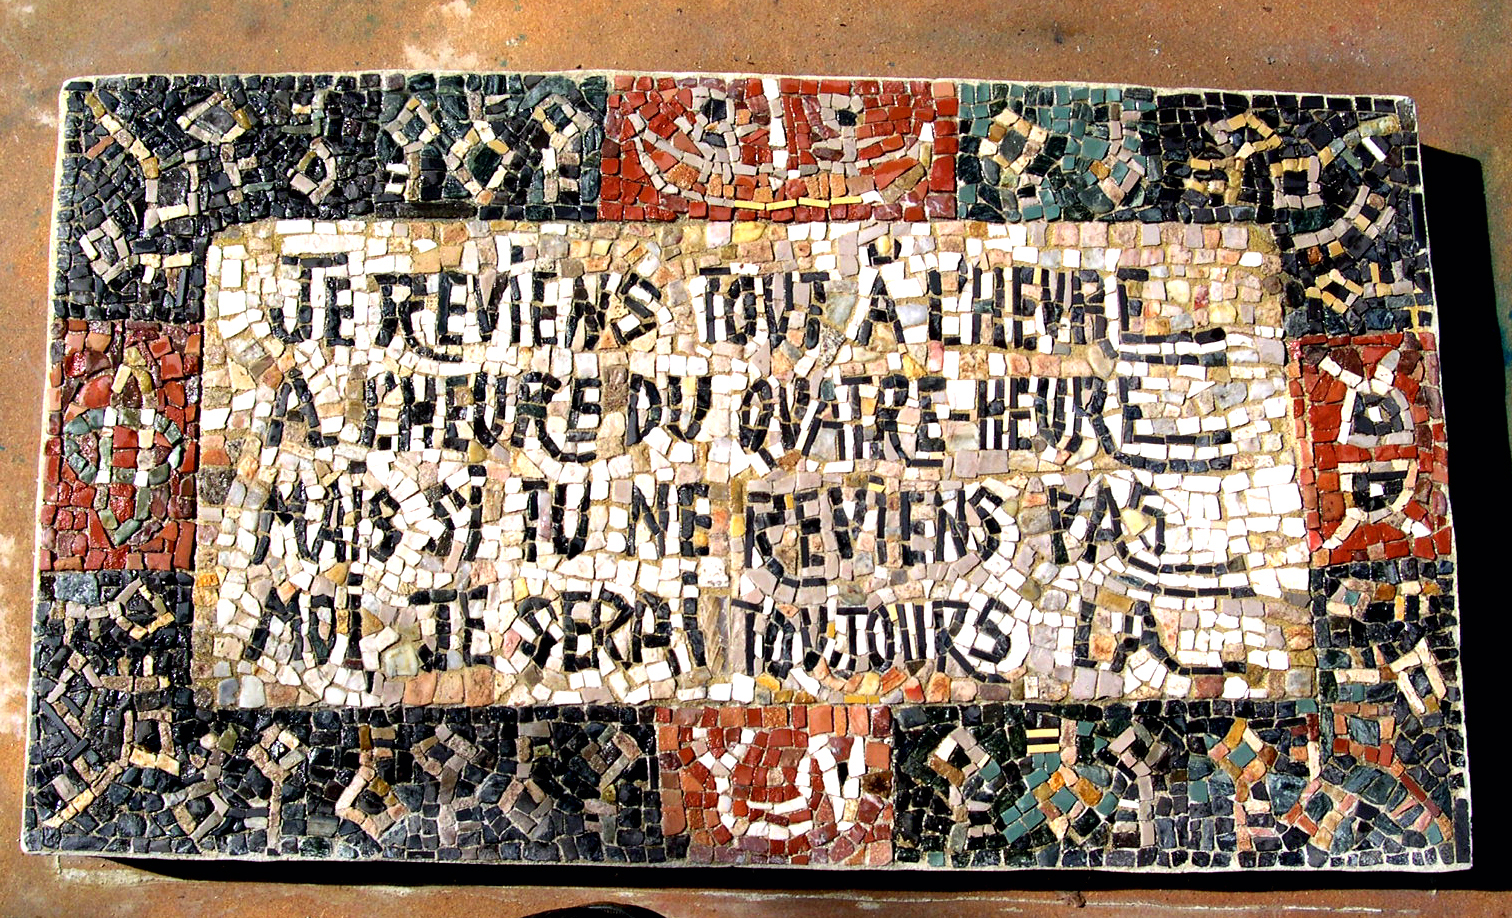 JE REVIENS TOUT A L'HEURE
A L'HEURE DU QUATRE HEURE
MAIS SI TU NE REVIENS PAS
MOI JE SERAI TOUJOURS LA